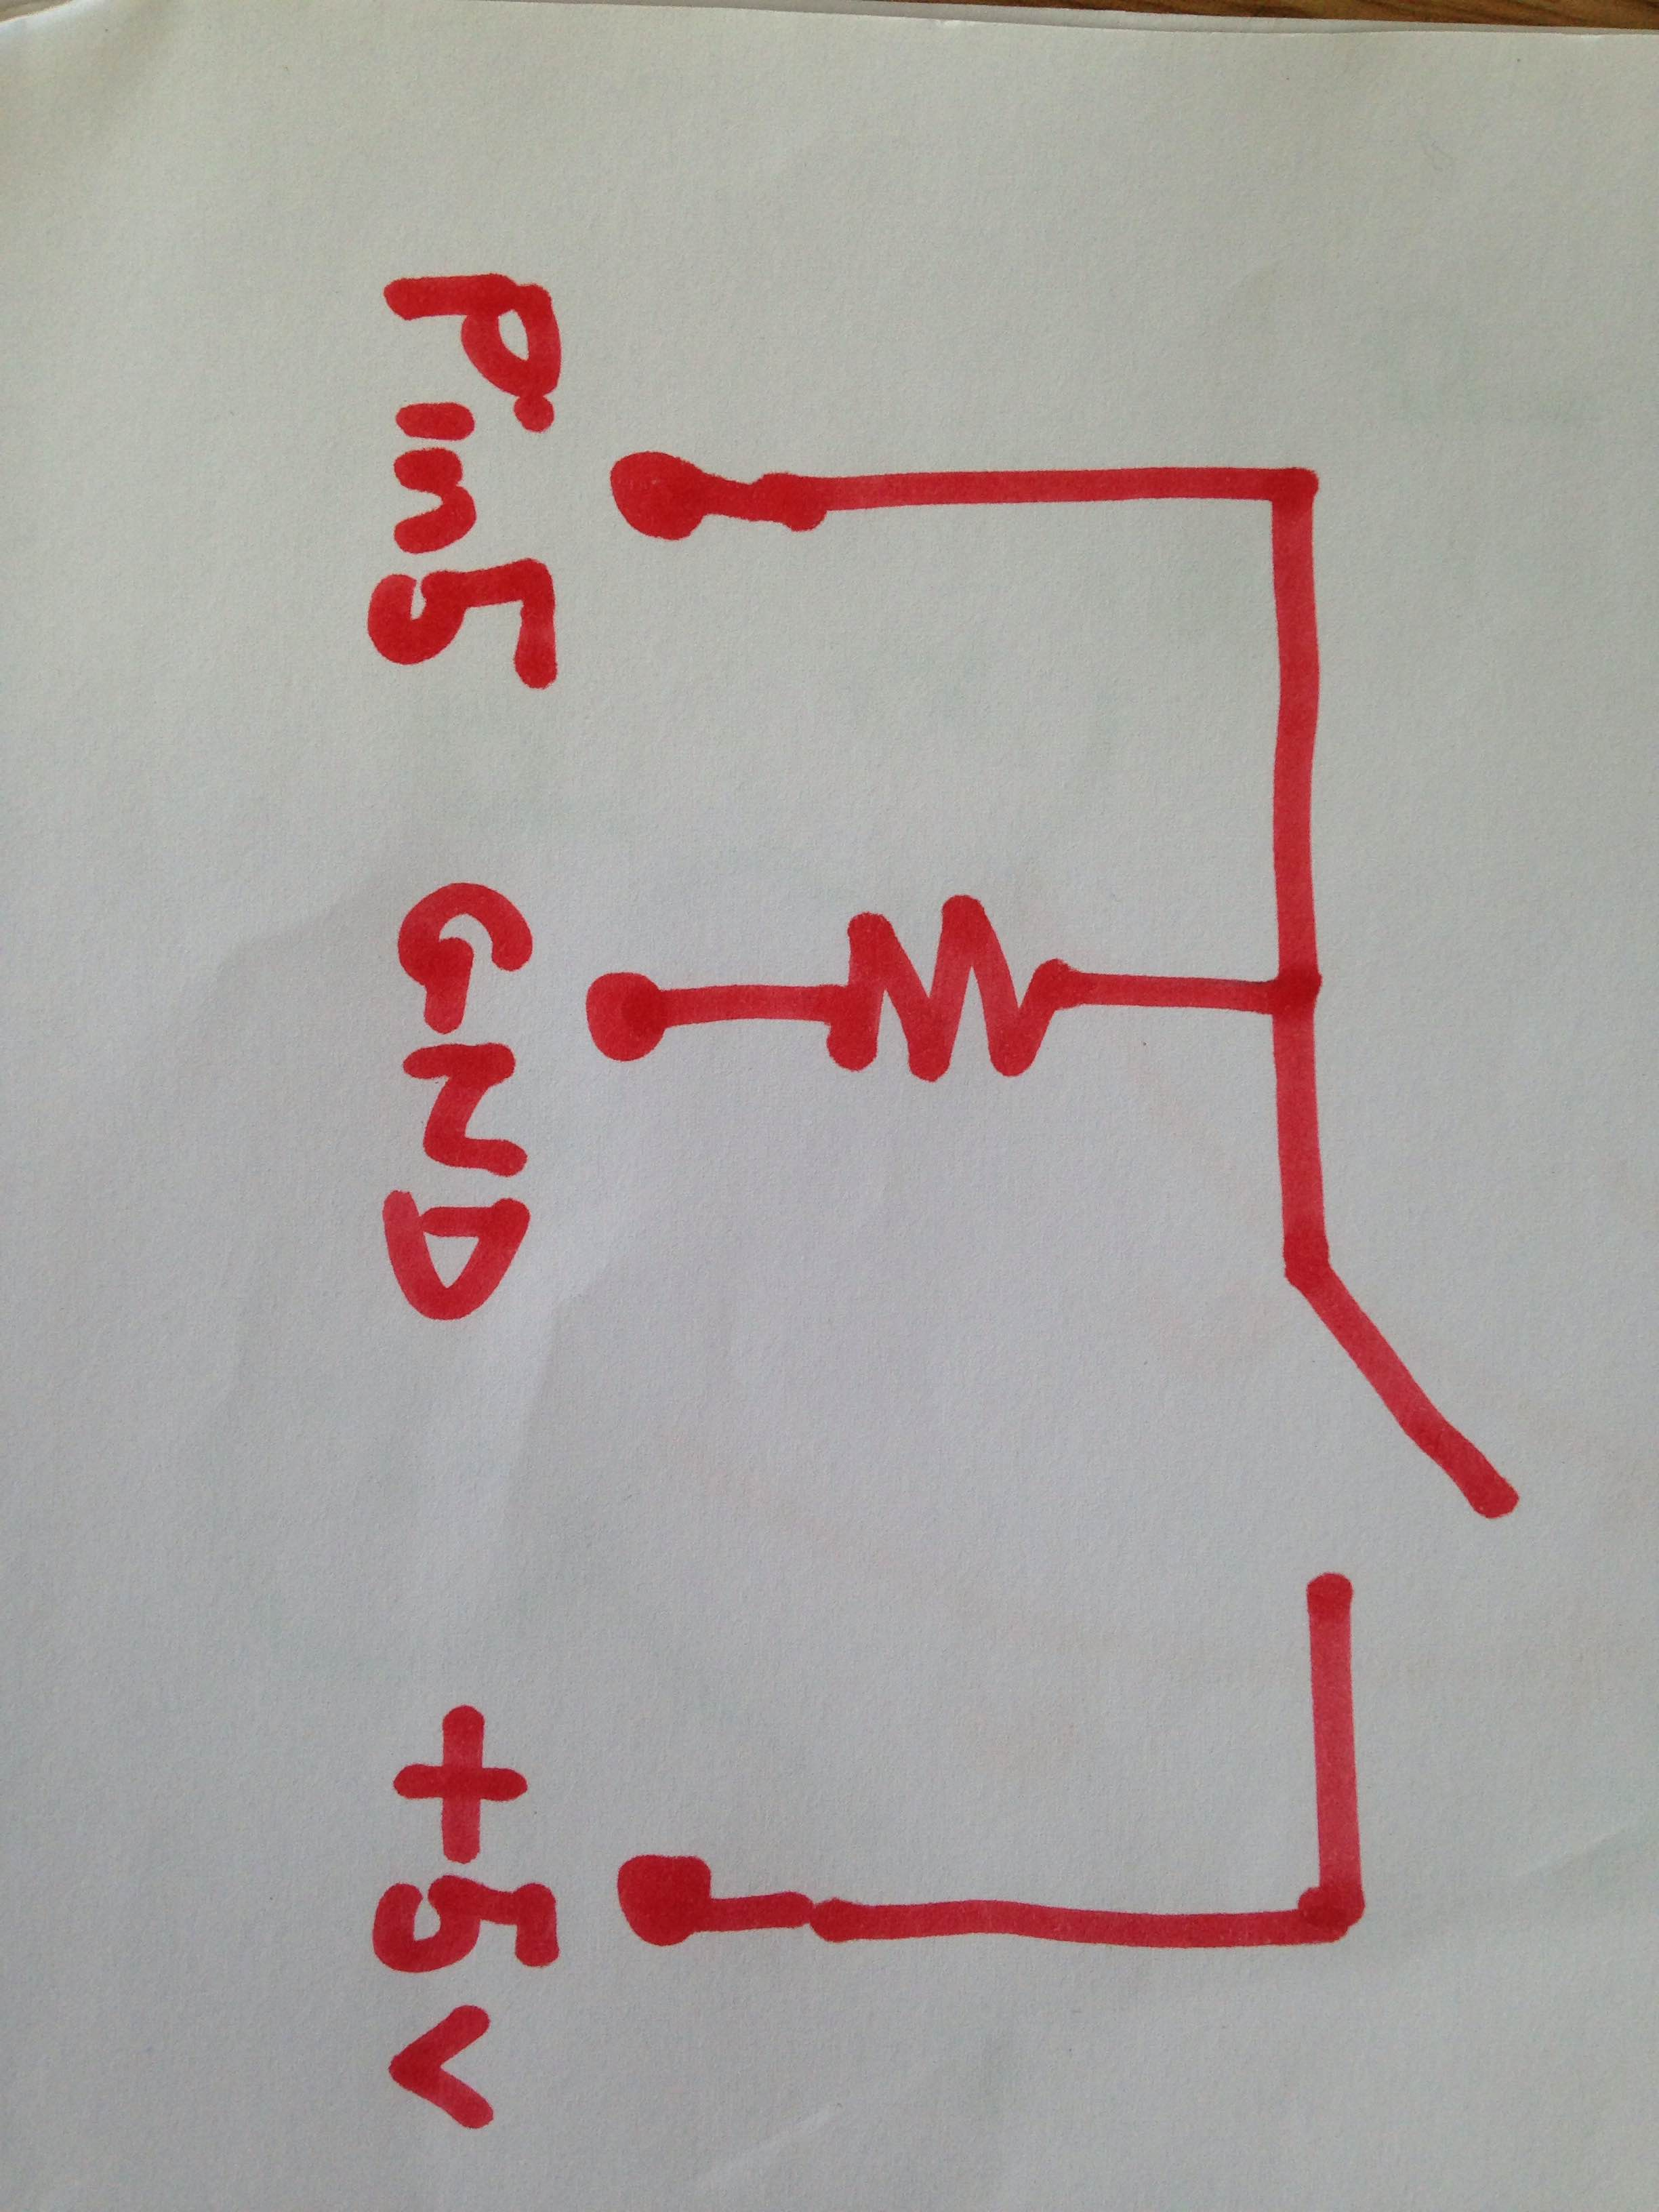 Pin5 GND +5V